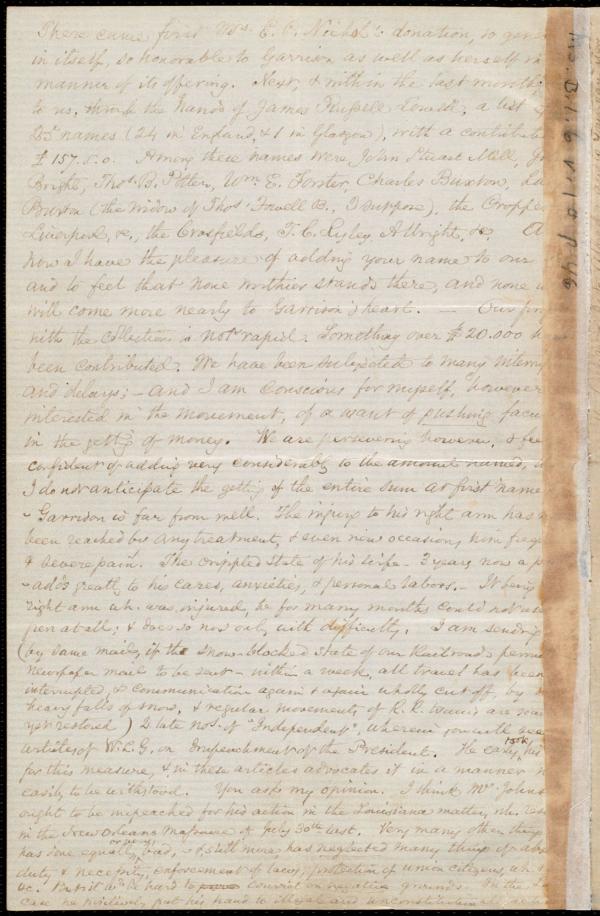 There came first Mrs. E. P. Nichol's donation, so gene
in itself, so honorable to Garrison as well as herself in
manner of its offering. Next, & within the last month
to us, through the hands of James Russell Lowell, a list
25 names (24 in England, & 1 in Glasgow), with a contribut
£157.5.0. Among these names were John Stuart Mill, Jn
Bright, Thos. B. Potter, Wm. E. Forster, Charles Buxton, La
Buxton (the widow of Thos. Fowell B., I suppose), the Cropper
Liverpool, &c., the Crosfields, T. C. Ryley, A. Albright, &c. A
now I have the pleasure of adding your name to our
and to feel that none worthier stands there, and none
will come more nearly to Garrison's heart. — Our pro
with the collection is not rapid. Something over $20.000 h
been contributed. We have been subjected to many interru
and delays; – and I am conscious for myself, however
interested in the movement, of a want of pushing facu
in the gettg of money. We are persevering however, & fee
confident of adding very considerably to the amount named,
I do not anticipate the getting of the entire sum at first name
– Garrison is far from well. The injury to his right arm has n
been reached by any treatment, & even now occasions him freq
& severe pain. The crippled state of his wife – 3 years now a
– adds greatly to his cares, anxieties, & personal labors. – It being
right arm wh. was injured, he for many months could not use
pen at all; & does so now only with difficulty. I am sending
(by same mails, if the snow-blocked state of our Railroads permi
newspaper mail to be sent – within a week, all travel has been
interrupted, & communication again & again wholly cut off, by
heavy falls of snow, & regular movements of R.R. trains are
yet restored) 2 late Nos. of "Independent", wherein you will see
articles of W.L.G. on Impeachment of the President. He early took his
for this measure, & in these articles advocates it in a manner n
easily to be withstood. You ask my opinion. I think Mr. Johns
ought to be impeached for his action in the Louisiana matter, wh. res
in the New Orleans Massacre of July 30th last. Very many other things
has done equally, or very, bad, – & still more has neglected many things of
duty & necessity, enforcement of laws, protection of union citizens, wh.
&c. But it wd. be hard to convict on negative grounds. In the
case he positively put his hand to illegal and unconstitutional
Ms. B.1.6 v.1 p.46